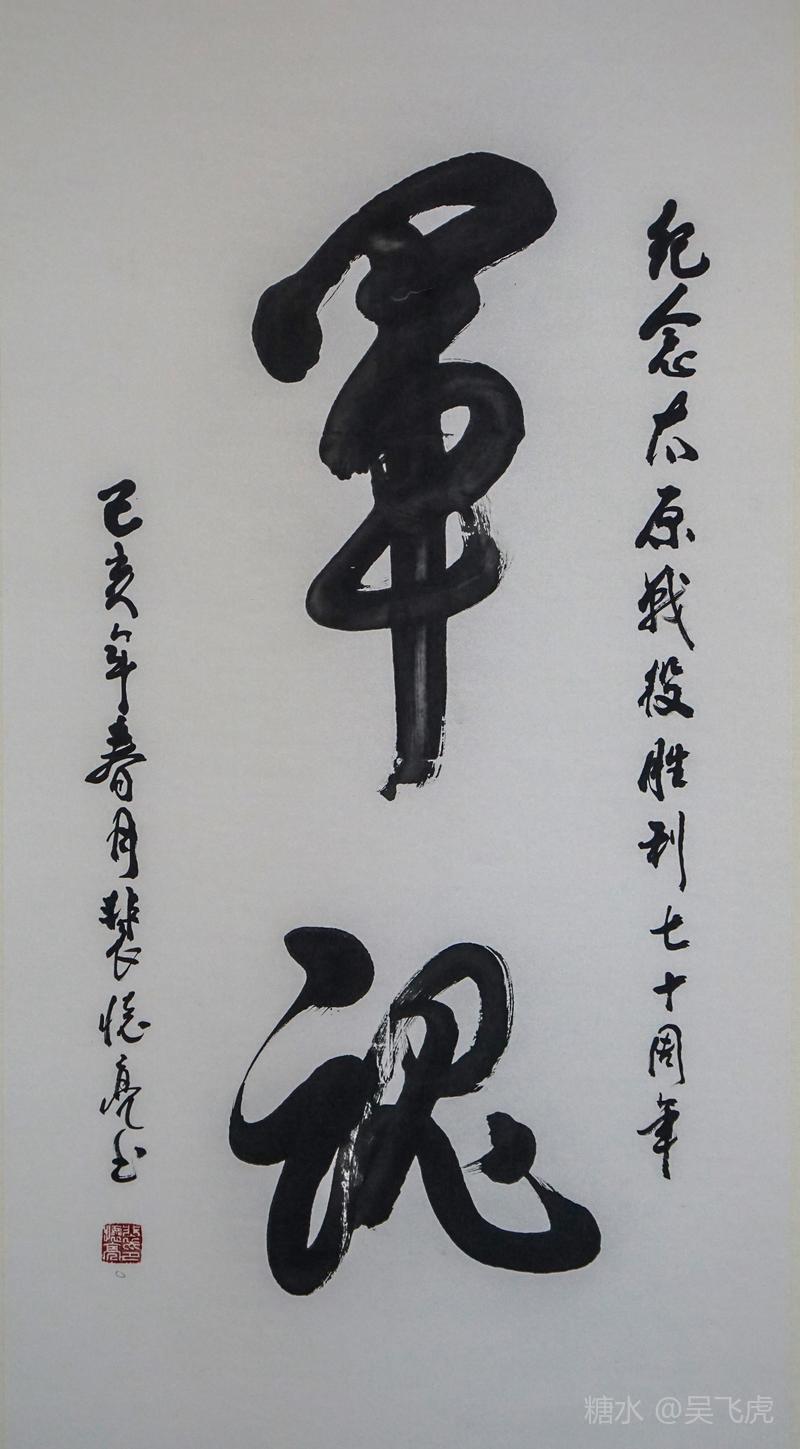 纪念太原战役胜利七十周年
軍魂
己亥年春月裴憶亮书
糖水 @吴飞虎